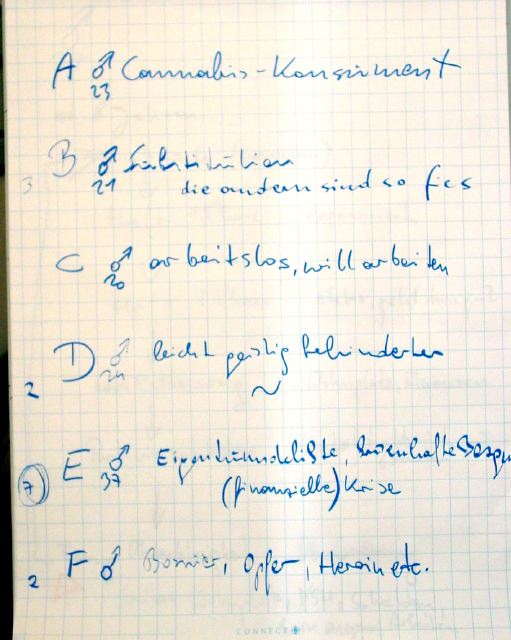 A ♂ Cannabis-Konsument
23
B ♂ Substitution
3 21 die andern sind so fies
C ♂ arbeitslos, will arbeiten
20
D ♂ leicht geistig behinderter
2 24 ~
E ♂ Eigentumsdelikte,
7 37 (finanzielle) Krise
2 F ♂ Borniert, Opfer, Heroin etc.
CONNECT